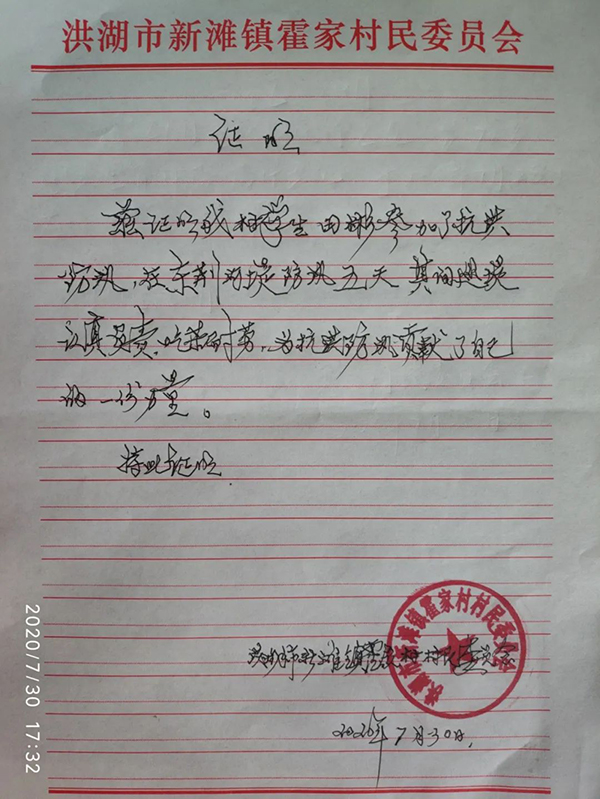 洪湖市新滩镇霍家村民委员会
证明
兹证明我村学生田彬参加了抗洪
防汛，在东荆河堤防汛五天 其间巡堤
认真负责，吃苦耐劳，为抗洪防汛贡献了自己
的一份力量。
特此证明
洪湖市新滩镇霍家村村民委员会
洪湖市新滩镇霍家村村民委员会
2020年7月30日
2020/7/30 17:32